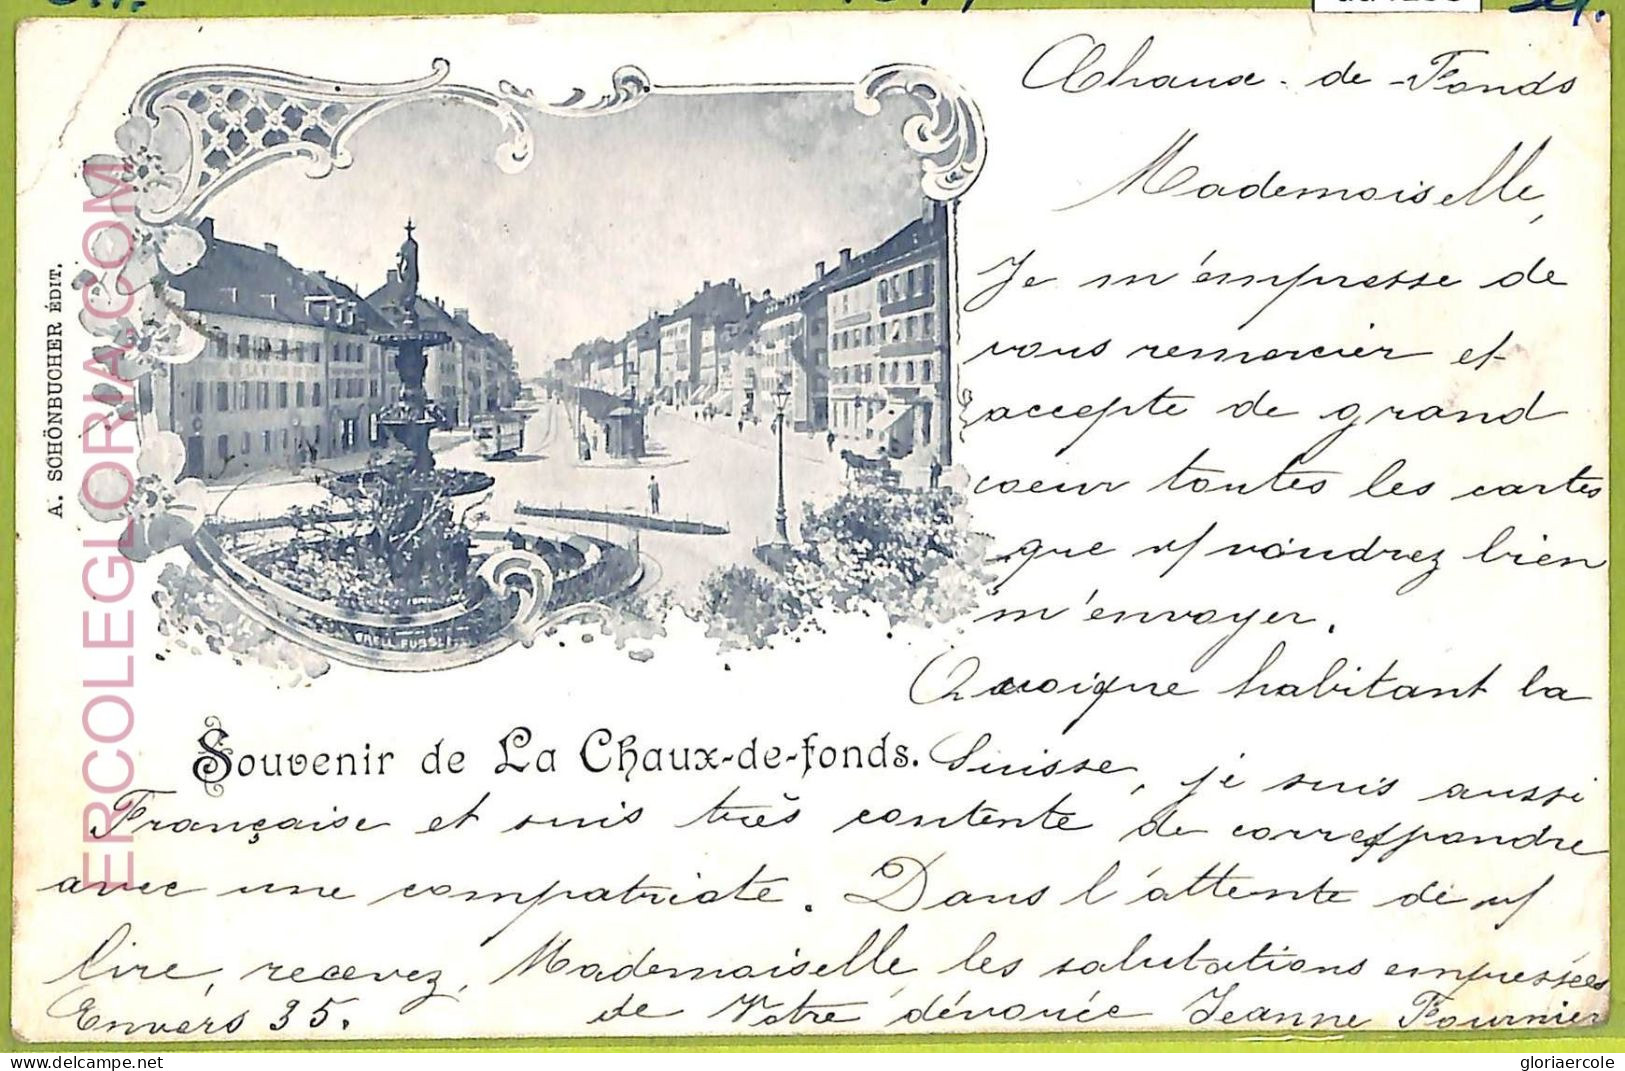 Chaux-de-Fonds
Mademoiselle,
Je m'empresse de
vous remercier et
accepte de grand
coeur toutes les cartes
que v/ voudrez bien
m'envoyer.
Quoique habitant la
Souvenir de La Chaux-de-fonds.
Suisse, je suis aussi
Française et suis très contente de correspondre
avec une compatriote. Dans l'attente de v/
lire, recevez, Mademoiselle, les salutations empressées
de Votre dévouée Jeanne Fournier
Envers 35.
A. SCHÖNBUCHER ÉDIT.
ORELL FUSSLI
ERCOLEGLORIA.COM
delcampe.net
gloriaercole